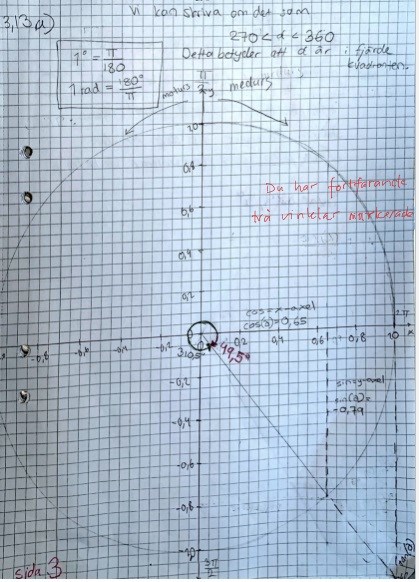 3,13 a)
Vi kan skriva om det som
270 < d < 360
Detta betyder att d är i fjärde
kvadranten.
1° = π/180
1 rad = 180°/π
π/2
moturs
medurs
1,0
0,8
0,6
Du har fortfarande
två vinklar markerade
0,4
0,2
cos = x-axel
cos(a) = 0,65
2π
x
-0,8
0,2
0,8
1,0
310,5°
-49,5°
-0,2
sin = y-axel
sin(a) =
-0,79
-0,4
-0,6
-0,8
-1,0
3π/2
sida 3